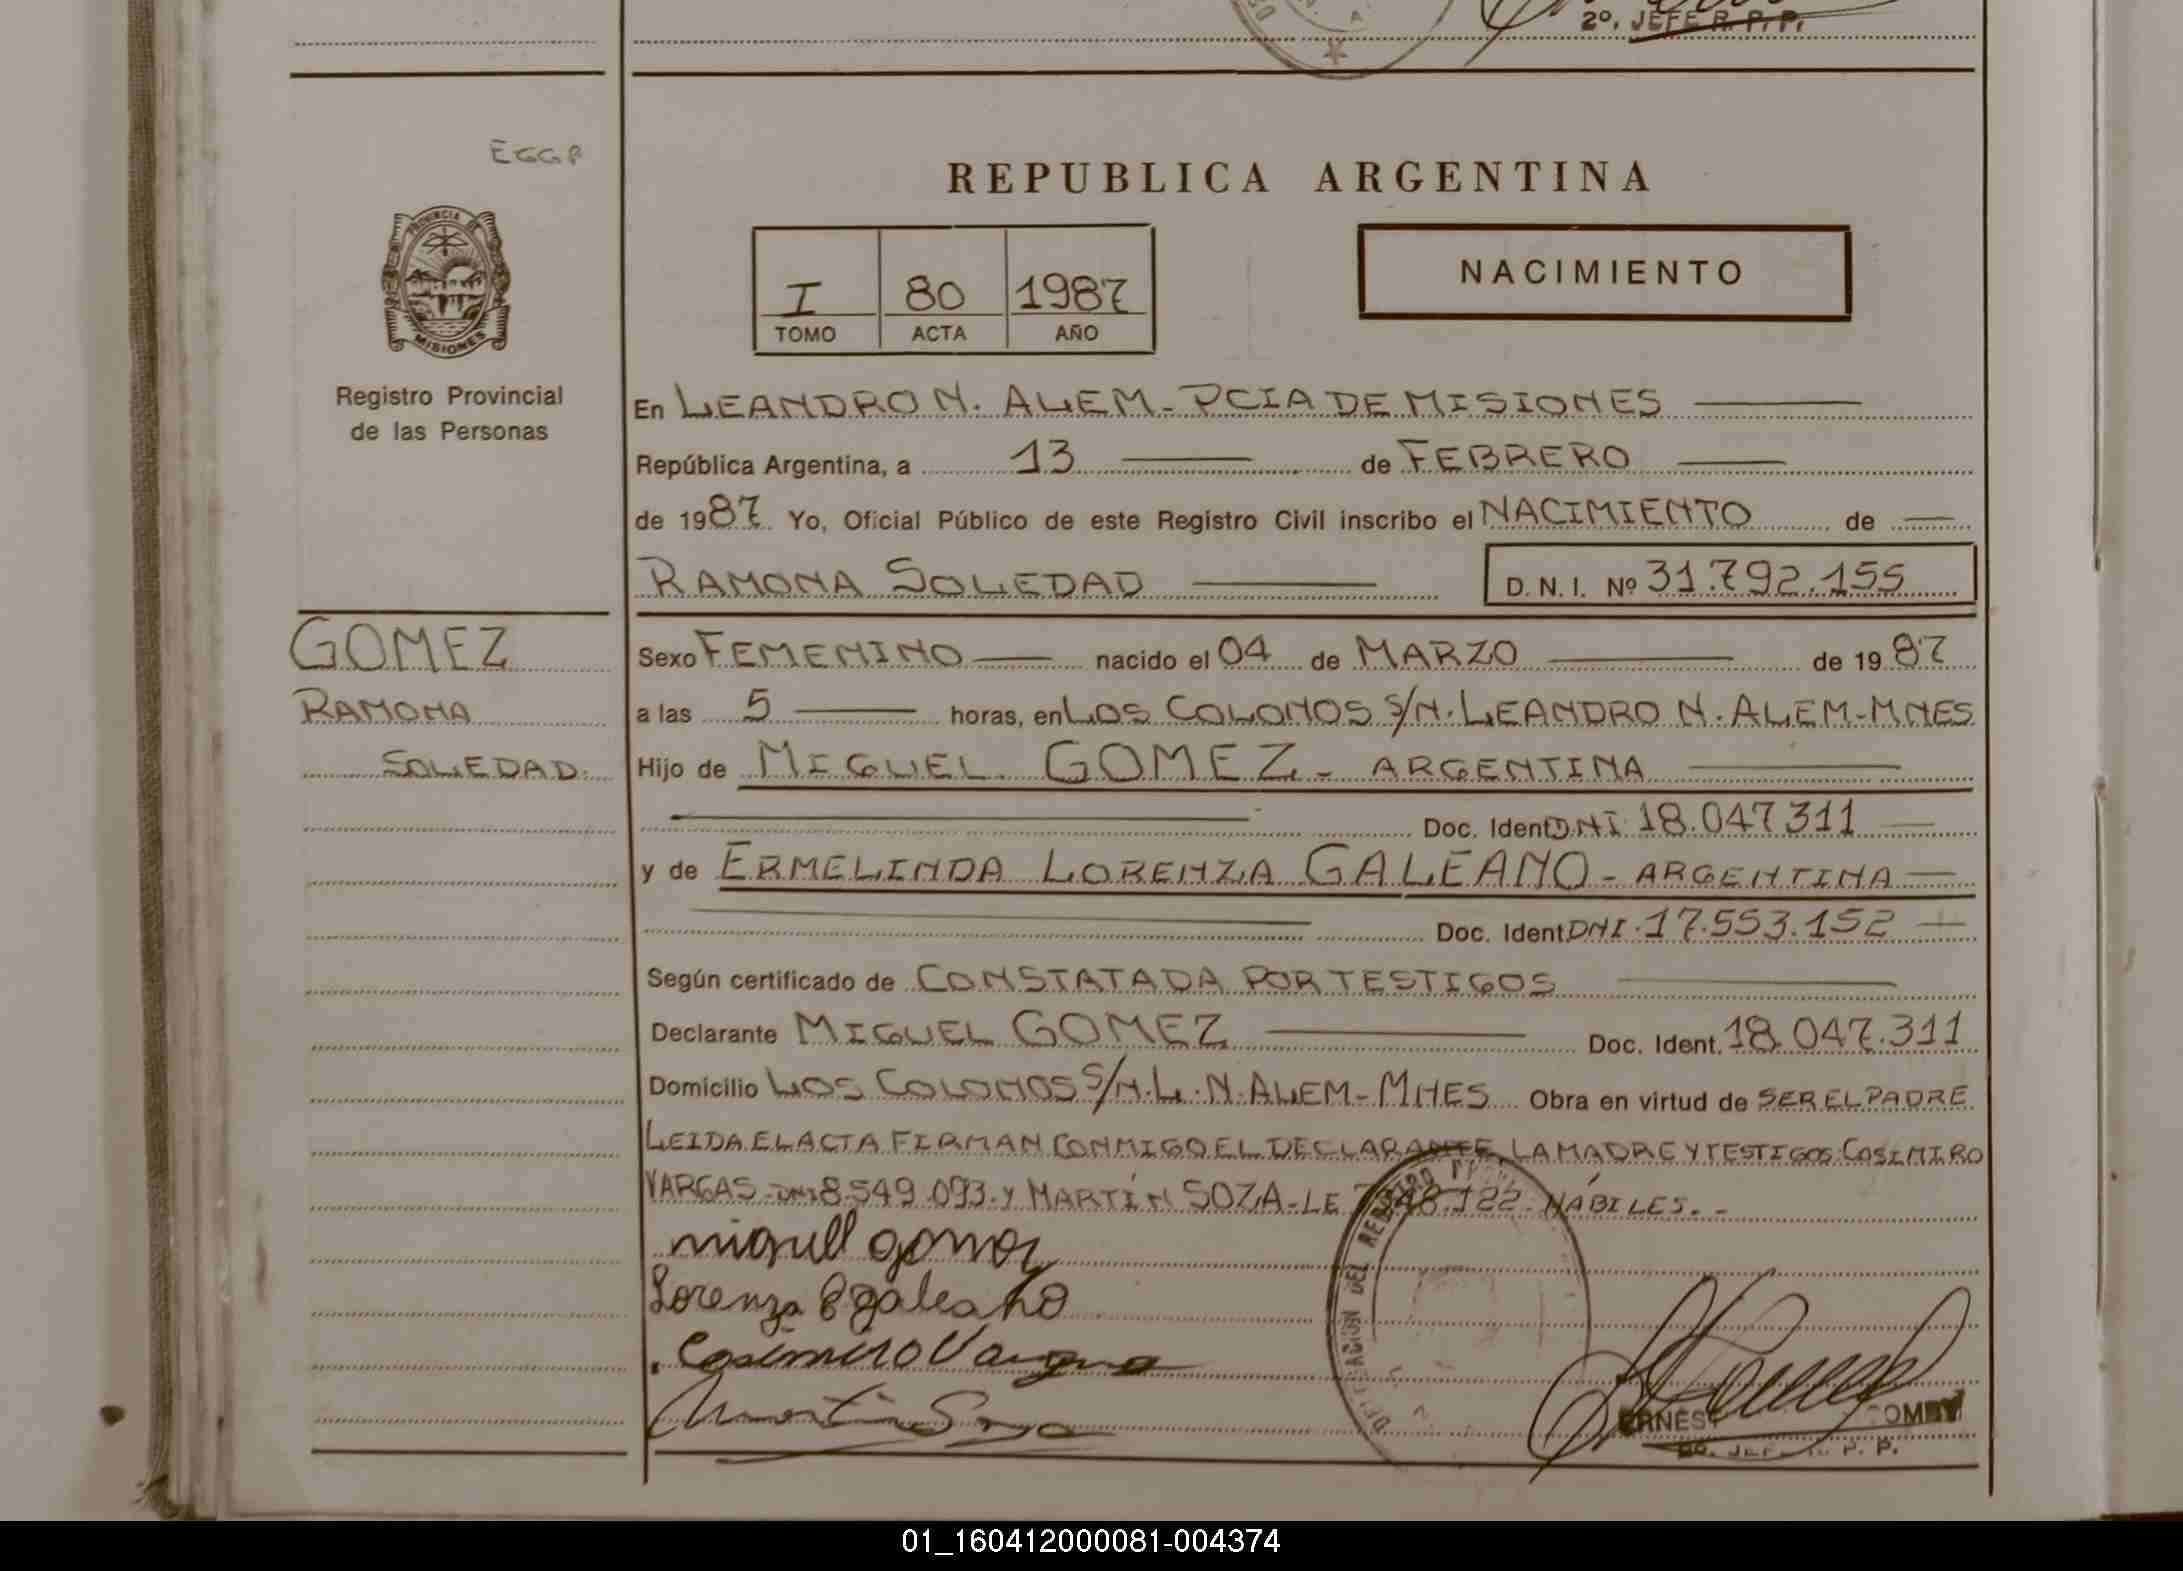 2º. JEFE R. P. P.
EGGP
REPUBLICA ARGENTINA
PROVINCIA DE
MISIONES
I 80 1987
TOMO ACTA AÑO
NACIMIENTO
Registro Provincial
de las Personas
En LEANDRO N. ALEM - PCIA DE MISIONES
República Argentina, a 13 de FEBRERO
de 1987. Yo, Oficial Público de este Registro Civil inscribo el NACIMIENTO de
RAMONA SOLEDAD D. N. I. Nº 31.792.155
GOMEZ
RAMONA
SOLEDAD
Sexo FEMENINO nacido el 04 de MARZO de 1987
a las 5 horas, en LOS COLONOS S/N. LEANDRO N. ALEM - MNES
Hijo de MIGUEL GOMEZ - ARGENTINA
Doc. Ident. DNI 18.047 311
y de ERMELINDA LORENZA GALEANO - ARGENTINA
Doc. Ident. DNI. 17.553.152
Según certificado de CONSTATADA POR TESTIGOS
Declarante MIGUEL GOMEZ Doc. Ident. 18.047.311
Domicilio LOS COLONOS S/N. L. N. ALEM - MNES Obra en virtud de SER EL PADRE
LEIDA EL ACTA FIRMAN CONMIGO EL DECLARANTE, LA MADRE Y TESTIGOS: COSIMIRO
VARGAS - DNI 8.549.093. y MARTÍN SOZA - LE HÁBILES. -
miguell gomez
Lorenza E galeano
Casimiro Vargas
Martin Soza
DELEGACIÓN DEL REGISTRO
2o. JEFE R. P. P.
01_160412000081-004374